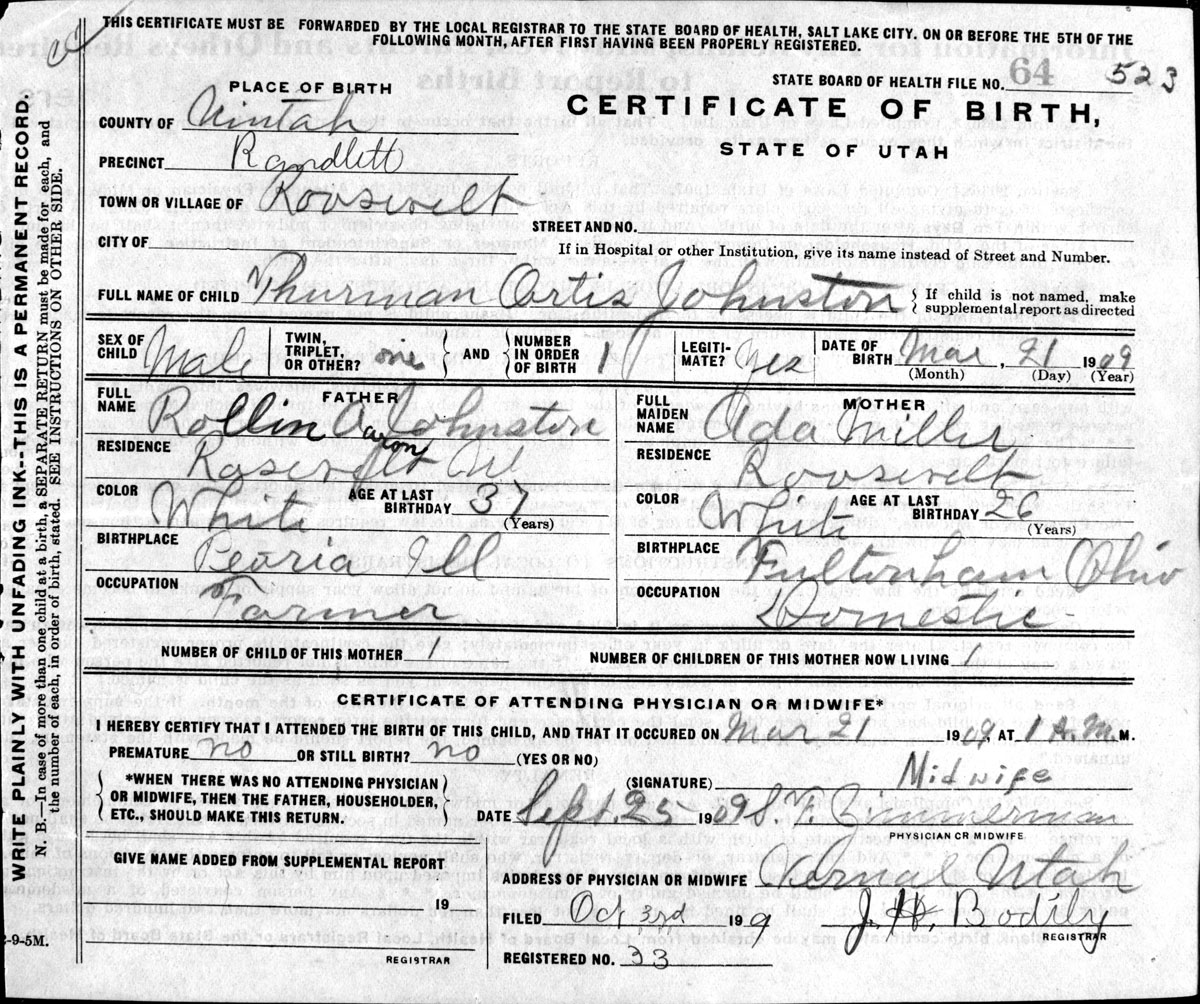 THIS CERTIFICATE MUST BE FORWARDED BY THE LOCAL REGISTRAR TO THE STATE BOARD OF HEALTH, SALT LAKE CITY. ON OR BEFORE THE 5TH OF THE
FOLLOWING MONTH, AFTER FIRST HAVING BEEN PROPERLY REGISTERED.
STATE BOARD OF HEALTH FILE NO. 64 523
PLACE OF BIRTH
CERTIFICATE OF BIRTH,
STATE OF UTAH
COUNTY OF Uintah
PRECINCT Randlett
TOWN OR VILLAGE OF Roosevelt
STREET AND NO.
CITY OF
If in Hospital or other Institution, give its name instead of Street and Number.
FULL NAME OF CHILD Thurman Ortis Johnston
If child is not named, make
supplemental report as directed
SEX OF CHILD Male
TWIN, TRIPLET, OR OTHER? one
AND
NUMBER IN ORDER OF BIRTH 1
LEGITI-MATE? Yes
DATE OF BIRTH Mar, 21 1909
(Month) (Day) (Year)
FATHER
FULL NAME Rollin A Johnston
aron
RESIDENCE Rosevelt
COLOR White AGE AT LAST BIRTHDAY 37
(Years)
BIRTHPLACE Peoria Ill
OCCUPATION Farmer
MOTHER
FULL MAIDEN NAME Ada Miller
RESIDENCE Roosevelt
COLOR White AGE AT LAST BIRTHDAY 26
(Years)
BIRTHPLACE Fultonham Ohio
OCCUPATION Domestic
NUMBER OF CHILD OF THIS MOTHER 1 NUMBER OF CHILDREN OF THIS MOTHER NOW LIVING 1
CERTIFICATE OF ATTENDING PHYSICIAN OR MIDWIFE*
I HEREBY CERTIFY THAT I ATTENDED THE BIRTH OF THIS CHILD, AND THAT IT OCCURED ON Mar 21 1909, AT 1 A.M. M.
PREMATURE no OR STILL BIRTH? no (YES OR NO)
*WHEN THERE WAS NO ATTENDING PHYSICIAN
OR MIDWIFE, THEN THE FATHER, HOUSEHOLDER,
ETC., SHOULD MAKE THIS RETURN.
(SIGNATURE) Midwife
DATE Sept. 25 1909 S. T. Zimmerman
PHYSICIAN OR MIDWIFE
GIVE NAME ADDED FROM SUPPLEMENTAL REPORT
19
REGISTRAR
ADDRESS OF PHYSICIAN OR MIDWIFE Vernal Utah
FILED Oct 3rd 1909 J. H. Bodily
REGISTRAR
REGISTERED NO. 33
2-9-5M.
WRITE PLAINLY WITH UNFADING INK--THIS IS A PERMANENT RECORD.
N. B.—In case of more than one child at a birth, a SEPARATE RETURN must be made for each, and
the number of each, in order of birth, stated. SEE INSTRUCTIONS ON OTHER SIDE.